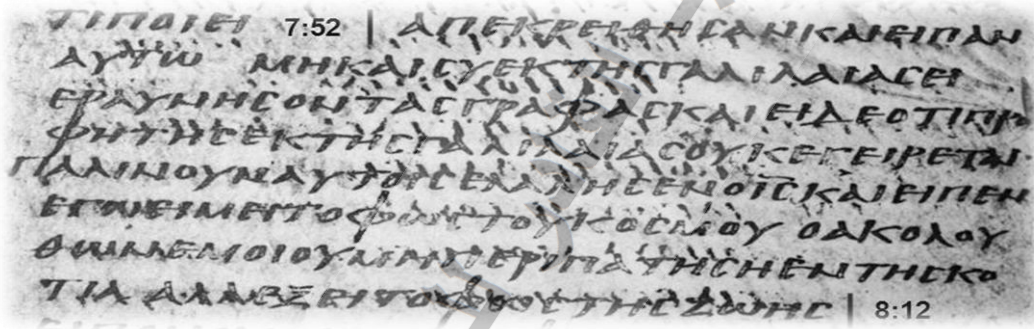 ΤΙΠΟΙΕΙ 7:52 | ΑΠΕΚΡΕΙΘΗCΑΝΚΑΙΕΙΠΑΝ
ΑΥΤΩ ΜΗΚΑΙCΥΕΚΤΗCΓΑΛΙΛΑΙΑCΕΙ
ΕΡΑΥΝΗCΟΝΤΑCΓΡΑΦΑCΚΑΙΕΙΔΕΟΤΙΠΡΟ
ΦΗΤΗCΕΚΤΗCΓΑΛΙΛΑΙΑCΟΥΚΕΓΕΙΡΕΤΑΙ
ΠΑΛΙΝΟΥΝΑΥΤΟΙCΕΛΑΛΗCΕΝΟΙ̅C̅ΚΑΙΕΙΠΕΝ
ΕΓΩΕΙΜΕΙΤΟΦΩCΤΟΥΚΟCΜΟΥ ΟΑΚΟΛΟΥ
ΘΩΝΕΜΟΙΟΥΜΗΠΕΡΙΠΑΤΗCΗΕΝΤΗCΚΟ
ΤΙΑ ΑΛΛΑΕΞΕΙΤΟΦΩCΤΗCΖΩΗC | 8:12